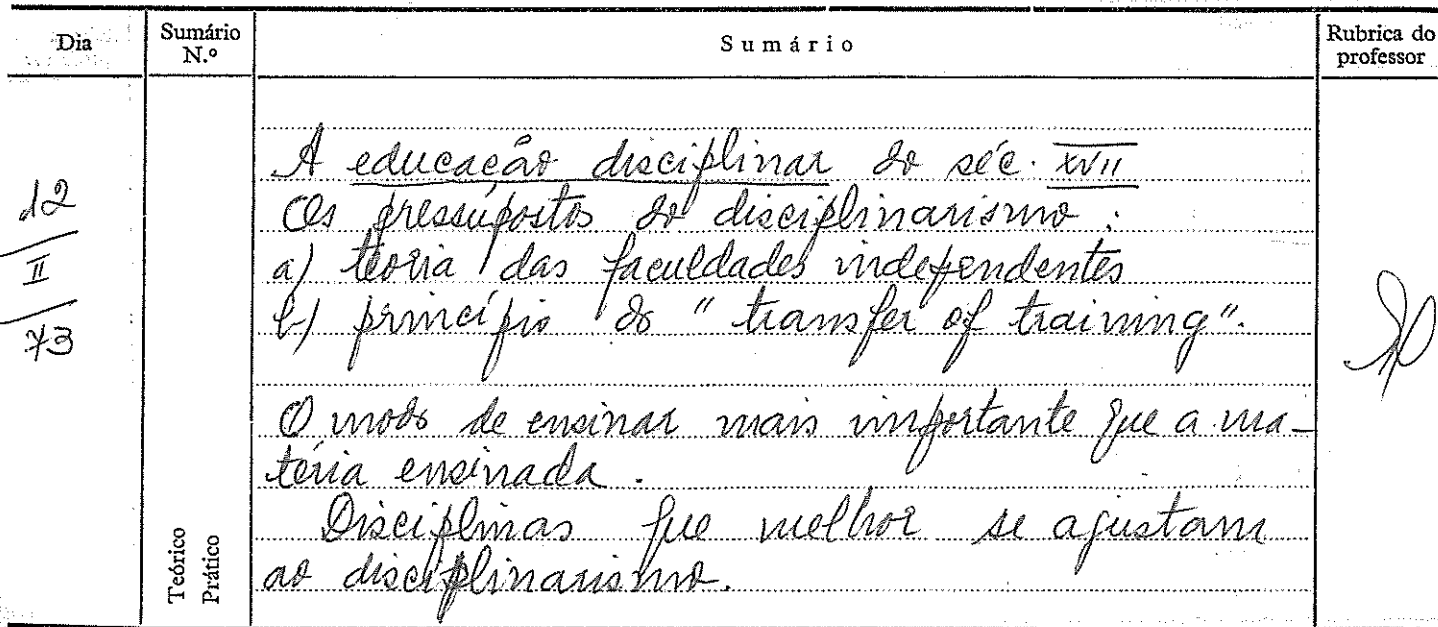 Dia
Sumário N.º
Sumário
Rubrica do professor
12
II
73
A educação disciplinar do séc. XVII
Os pressupostos do disciplinarismo:
a) teoria das faculdades independentes
b) princípio do "transfer of training".
O modo de ensinar mais importante que a ma-
téria ensinada.
Disciplinas que melhor se ajustam
ao disciplinarismo.
Teórico
Prático